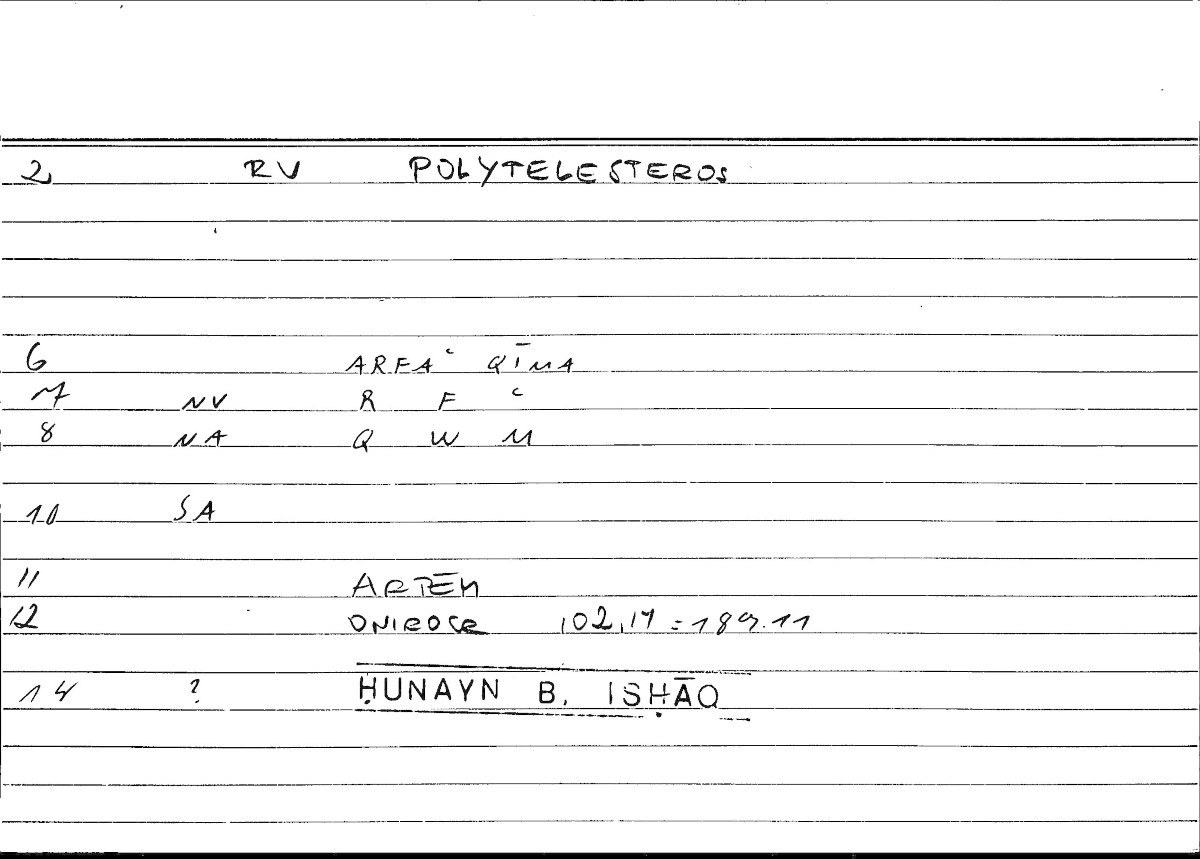 2 RV POLYTELESTEROS
6 ARFAʿ QĪMA
7 NV R F ʿ
8 NA Q W M
10 SA
11 ARTĒM
12 ONIROCR 102,17 = 189.11
14 ? ḤUNAYN B. ISḤĀQ